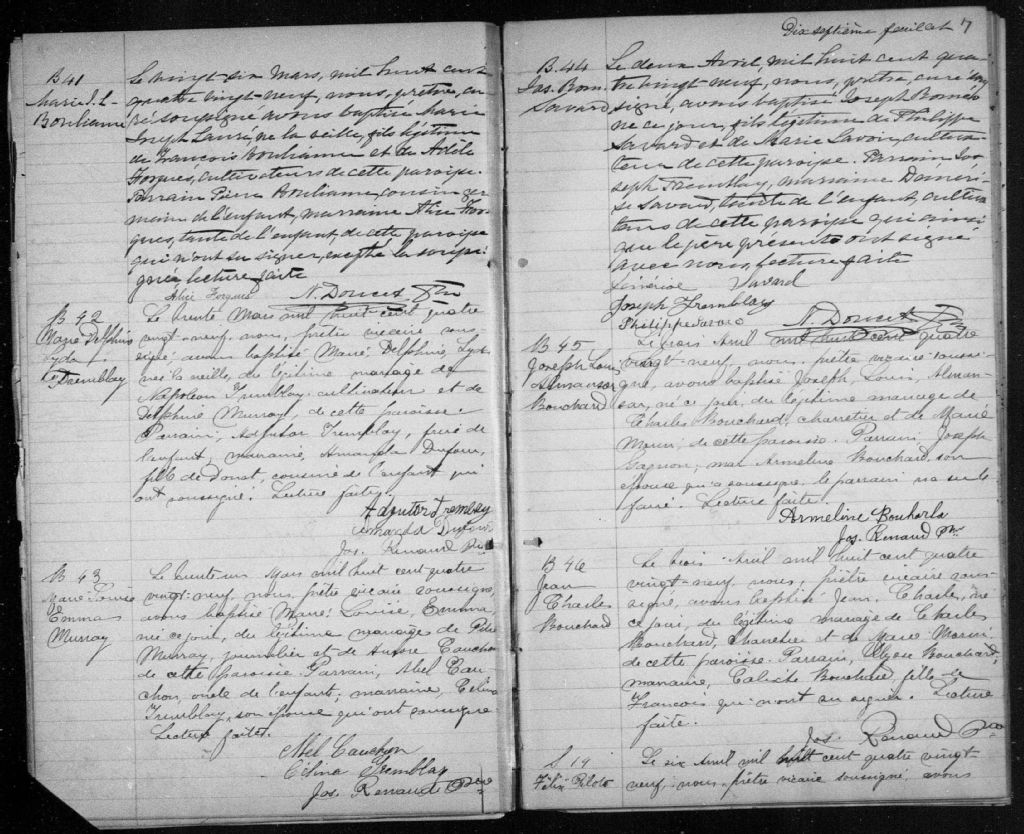 B 41
Marie J. L.
Bonhiame
Le vingt six Mars, mil huit cent
quatre vingt-neuf, nous, prêtre, cu
ré soussigné avons baptisé Marie
Joseph Laura, né la veille, fils légitime
de François Bonhiame et de Adèle
Forgues, cultivateurs de cette paroisse.
Parrain Pierre Bonhiame, cousin ger
main de l'enfant, marraine Alice For
gues, tante de l'enfant, de cette paroisse
qui n'ont su signer, excepté la soussi
gnée, lecture faite
Alice Forgues
N. Doucet Ptre
B 42
Marie Delphine
Lyda
Tremblay
Le trente Mars mil huit cent quatre
vingt-neuf, nous, prêtre vicaire sous
signé avons baptisé Marie Delphine, Lyda
née la veille, du légitime mariage de
Napoleon Tremblay cultivateur et de
Delphine Murray, de cette paroisse.
Parrain, Adjutor Tremblay, frère de
l'enfant, marraine, Amanda Dufour,
fille de Donat, cousine de l'enfant qui
ont soussigné. Lecture faite.
Adjutor Tremblay
Amanda Dufour
Jos. Renaud Ptre
B 43
Marie Louise
Emma
Murray
Le trente-un Mars mil huit cent quatre
vingt-neuf, nous, prêtre vicaire soussigné,
avons baptisé Marie Louise, Emma,
née ce jour, du légitime mariage de Pitre
Murray, journalier et de Aurore Cauchon
de cette paroisse Parrain, Abel Cau
chon, oncle de l'enfant; marraine, Célina
Tremblay, son épouse qui ont soussigné
Lecture faite.
Abel Cauchon
Célina Tremblay
Jos. Renaud Ptre
Dix septième feuillet 17
B. 44
Jos. Rom.
Savard
Le deux Avril, mil huit cent qua
tre vingt-neuf, nous, prêtre, curé sous
signé, avons baptisé Joseph Roméo
né ce jour, fils légitime de Philippe
Savard et de Marie Lavoie, cultiva
teur de cette paroisse. Parrain Jo
seph Tremblay, marraine Démeri
se Savard, tante de l'enfant, cultiva
teurs de cette paroisse qui ainsi
que le père présents ont signé
avec nous, lecture faite
Savard
Joseph Tremblay
Philippe Savard
N. Doucet Ptre
B 45
Joseph Louis
Almansar
Bouchard
Le trois Avril mil huit cent quatre
vingt-neuf, nous, prêtre vicaire soussi
gné, avons baptisé Joseph, Louis, Alman
sar, né ce jour, du légitime mariage de
Charles Bouchard, charretier et de Marie
Morin, de cette paroisse. Parrain, Joseph
Gagnon; mar. Armeline Bouchard, son
épouse qui a soussigné, le parrain n'a su le
faire. Lecture faite.
Armeline Boucharla
Jos. Renaud Ptre
B 46
Jean
Charles
Bouchard
Le trois Avril mil huit cent quatre
vingt-neuf, nous, prêtre vicaire sous
signé, avons baptisé Jean, Charles, né
ce jour, du légitime mariage de Charles
Bouchard, charretier et de Marie Morin
de cette paroisse. Parrain, Ulysse Bouchard;
marraine, Calixte Bouchard, fille de
François qui n'ont su signer. Lecture
faite.
Jos. Renaud Ptre
S 19
Félix Pilote
Le six Avril mil huit cent quatre vingt
neuf, nous, prêtre vicaire soussigné, avons